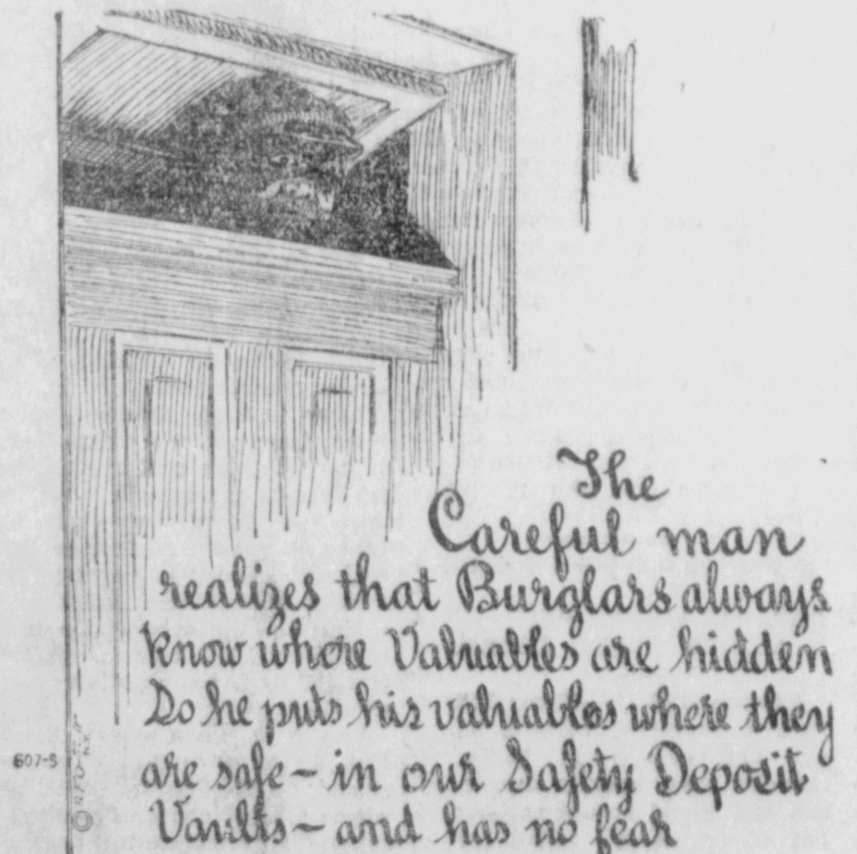 The
Careful man
realizes that Burglars always
know where Valuables are hidden
So he puts his valuables where they
are safe - in our Safety Deposit
Vaults - and has no fear
607-S